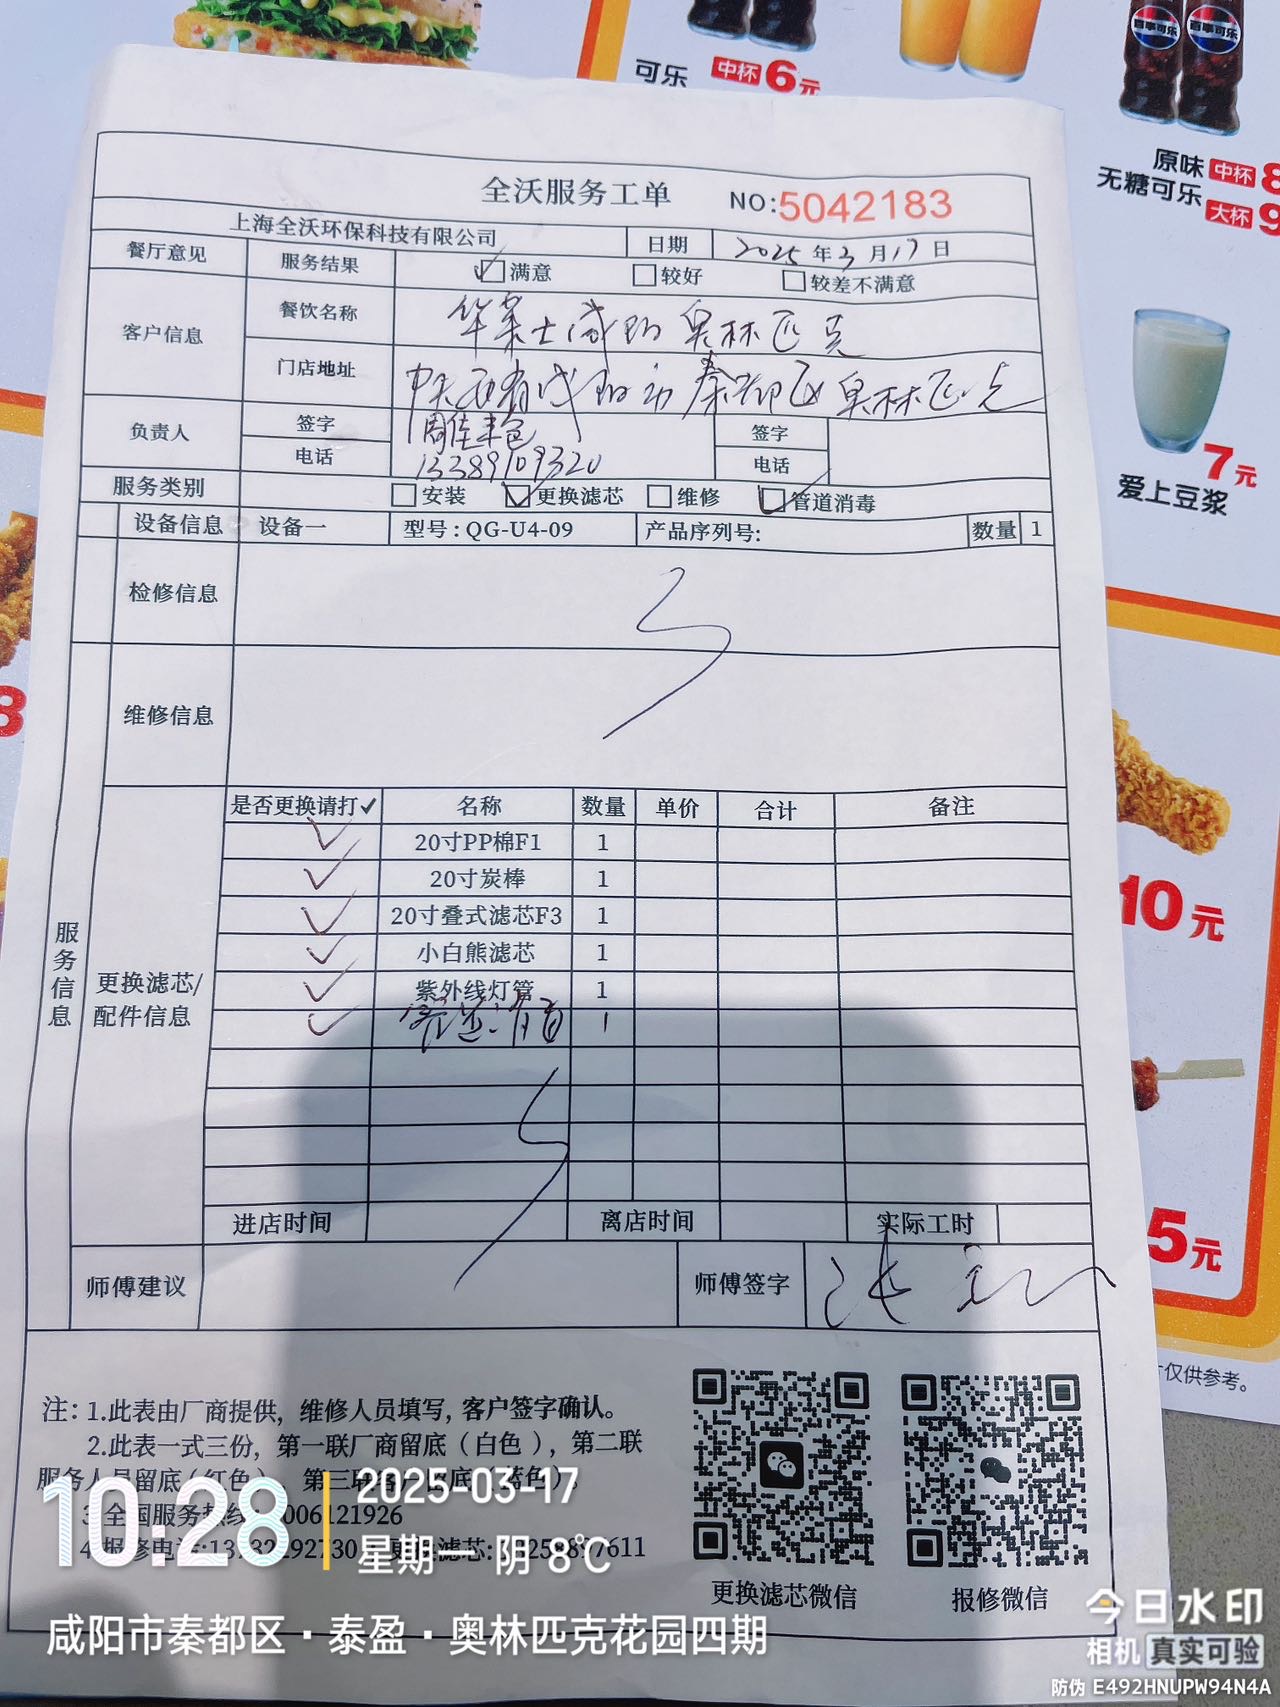 可乐 中杯6元
百事可乐 百事可乐
原味 中杯8
无糖可乐 大杯9
全沃服务工单 NO:5042183
上海全沃环保科技有限公司 日期 2025年3月17日
餐厅意见 服务结果 ✓满意 □较好 □较差不满意
客户信息 餐饮名称 华莱士咸阳奥林匹克
门店地址 陕西省咸阳市秦都区奥林匹克
负责人 签字 签字
电话 13389109320 电话
服务类别 □安装 ✓更换滤芯 □维修 ✓管道消毒
设备信息 设备一 型号:QG-U4-09 产品序列号: 数量 1
检修信息
维修信息
服务信息
更换滤芯/配件信息
是否更换请打✓ 名称 数量 单价 合计 备注
✓ 20寸PP棉F1 1
✓ 20寸炭棒 1
✓ 20寸叠式滤芯F3 1
✓ 小白熊滤芯 1
✓ 紫外线灯管 1
✓ 1
进店时间 离店时间 实际工时
师傅建议 师傅签字
注:1.此表由厂商提供,维修人员填写,客户签字确认。
2.此表一式三份,第一联厂商留底(白色),第二联
服务人员留底(红色) 第三联 留底(蓝色)。
3.全国服务热线 006121926
4.报修电话:13 更换滤芯:
更换滤芯微信 报修微信
7元
爱上豆浆
8
10元
5元
仅供参考。
10:28 2025-03-17
星期一 阴 8℃
咸阳市秦都区·泰盈·奥林匹克花园四期
今日水印
相机 真实可验
防伪 E492HNUPW94N4A